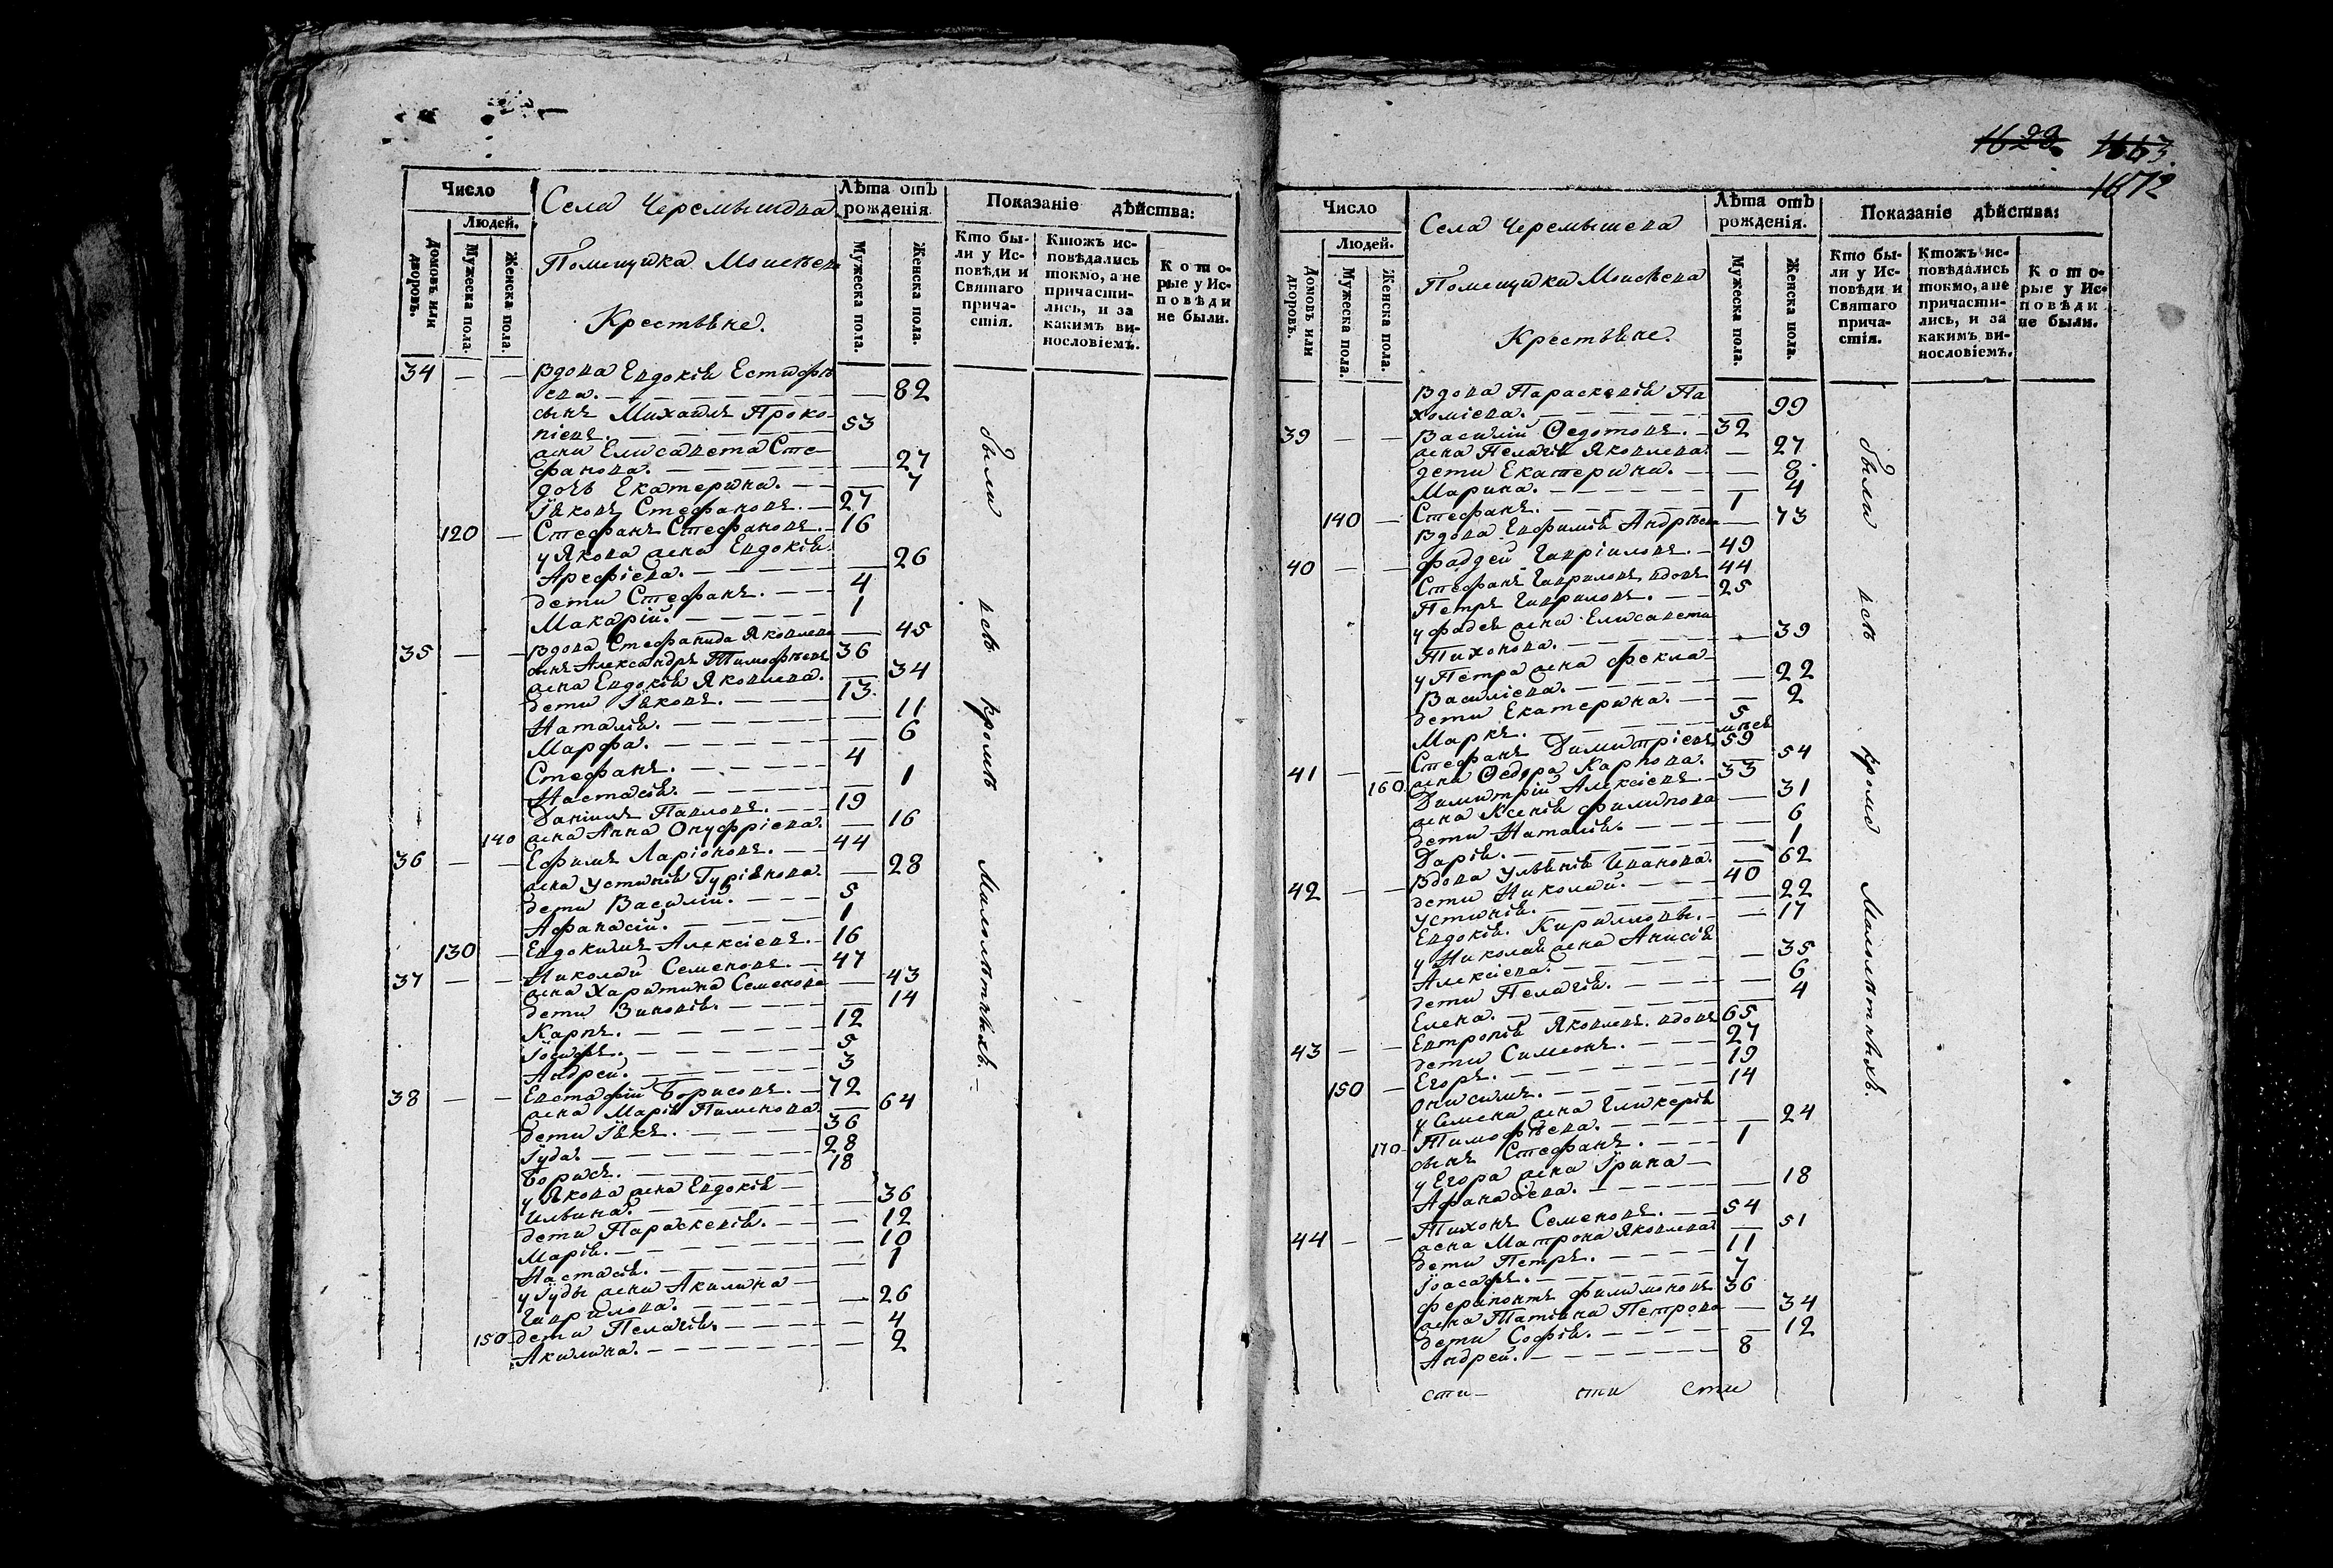 1623. 1663.
1672
Число
Людей.
Домовъ или дворовъ.
Мужеска пола.
Женска пола.
Села Черемышева
Помещика Моисѣева
Крестьяне.
Лѣта отъ рожденія.
Мужеска пола.
Женска пола.
Показаніе дѣйства:
Кто были у Исповѣди и Святаго причастія.
Ктожъ исповѣдались токмо, а не причастились, и за какимъ винословіемъ.
Которые у Исповѣди не были.
34 — — Вдова Евдокія Естифѣ
ева. — 82
сынъ Михаилъ Проко-
піевъ. 53
жена Елисавета Сте-
фанова. — 27
дочь Екатерина. — 7
Іяковъ Стефановъ. 27
120 — Стефанъ Стефановъ. 16
у Якова жена Евдокія
Арефіева. — 26
дети Стефанъ. 4
Макарій. 1
35 — — Вдова Стефанида Яковлева — 45
сынъ Александръ Тимофѣевъ 36
жена Евдокія Яковлева. — 34
дети Іяковъ. 13.
Наталія. — 11
Марфа. — 6
Стефанъ. 4
Настасія. — 1
Даніилъ Павловъ. 19
140 жена Анна Онуфріева. — 16
36 — — Ефимъ Ларіоновъ. 44
жена Устинія Гуріянова. — 28
дети Василій. 5
Афанасій. 1
130 — Евдокимъ Алексіевъ. 16
37 — — Николай Семеновъ. 47
жена Харитина Семенова — 43
дети Зиновія. — 14
Карпъ. 12
Іосифъ. 5
Андрей. 3
38 — — Евстафій Борисовъ. 72
жена Марія Пименова. — 64
дети Іякъ. 36
Іуда. 28
Борисъ. 18
у Якова жена Евдокія
Ильина. — 36
дети Параскевія. — 12
Марія. — 10
Настасія. — 1
у Іуды жена Акилина
Гаврилова. — 26
150 дети Пелагія. — 4
Акилина. — 2
были всѣ кромѣ Малолѣтныхъ.
Число
Людей.
Домовъ или дворовъ.
Мужеска пола.
Женска пола.
Села Черемышева
Помещика Моисѣева
Крестьяне.
Лѣта отъ рожденія.
Мужеска пола.
Женска пола.
Показаніе дѣйства:
Кто были у Исповѣди и Святаго причастія.
Ктожъ исповѣдались токмо, а не причастились, и за какимъ винословіемъ.
Которые у Исповѣди не были.
Вдова Параскевія Па
хоміева. — 99
39 — — Василій Ѳедотовъ. 32
жена Пелагія Яковлева. — 27
дети Екатерина. — 8
Марина. — 4
140 — Стефанъ. 1
Вдова Евфимія Андрѣева — 73
40 — — Фаддей Гавріиловъ. 49
Стефанъ Гавриловъ вдовъ 44
Петръ Гавриловъ. 25
у Фадея жена Елисавета
Тихонова. — 39
у Петра жена Фекла
Василіева. — 22
дети Екатерина. — 2
Маркъ. 5 мѣсе
41 — — Стефанъ Димитріевъ 59
160 жена Ѳедора Карпова. — 54
Димитрій Алексіевъ 33
жена Ксенія Филипова — 31
дети Наталія. — 6
Дарія. — 1
42 — — Вдова Ульянія Иванова. — 62
дети Николай. 40
Устинія. — 22
Евдокія. Кириловы. — 17
у Николая жена Анисія
Алексіева. — 35
дети Пелагія. — 6
Елена. — 4
43 — — Евтропій Яковлевъ. вдовъ 65
дети Симеонъ. 27
Егоръ. 19
150 — Онисимъ. 14
у Семена жена Гликерія
170 Тимофѣева. — 24
сынъ Стефанъ. 1
у Егора жена Ірина
Афанасіева. — 18
44 — — Тихонъ Семеновъ. 54
жена Матрона Яковлева — 51
дети Петръ. 11
Іоасафъ. 7
Ферапонтъ Филимоновъ 36
жена Татіяна Петрова — 34
дети Софія. — 12
Андрей. 8
были всѣ кроме Малолѣтныхъ.
сти сти сти